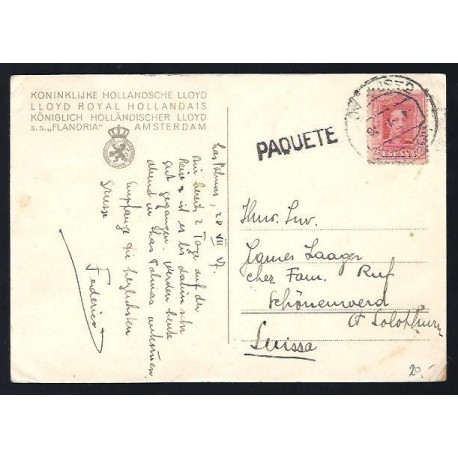 KONINKLIJKE HOLLANDSCHE LLOYD
LLOYD ROYAL HOLLANDAIS
KÖNIGLICH HOLLÄNDISCHER LLOYD
s.s. „FLANDRIA" AMSTERDAM
PAQUETE
Las Palmas, 20 VII
bereits 2 Tage auf der
Reise & ist es bis dahin sehr
gut gegangen, werden heute
abend in Las Palmas ankommen.
Empfange die herzlichsten
Grüsse
Federico
Agnes Laager
chez Fam. Ruf
Schönenwerd
Ct Solothurn
Suissa
20.-